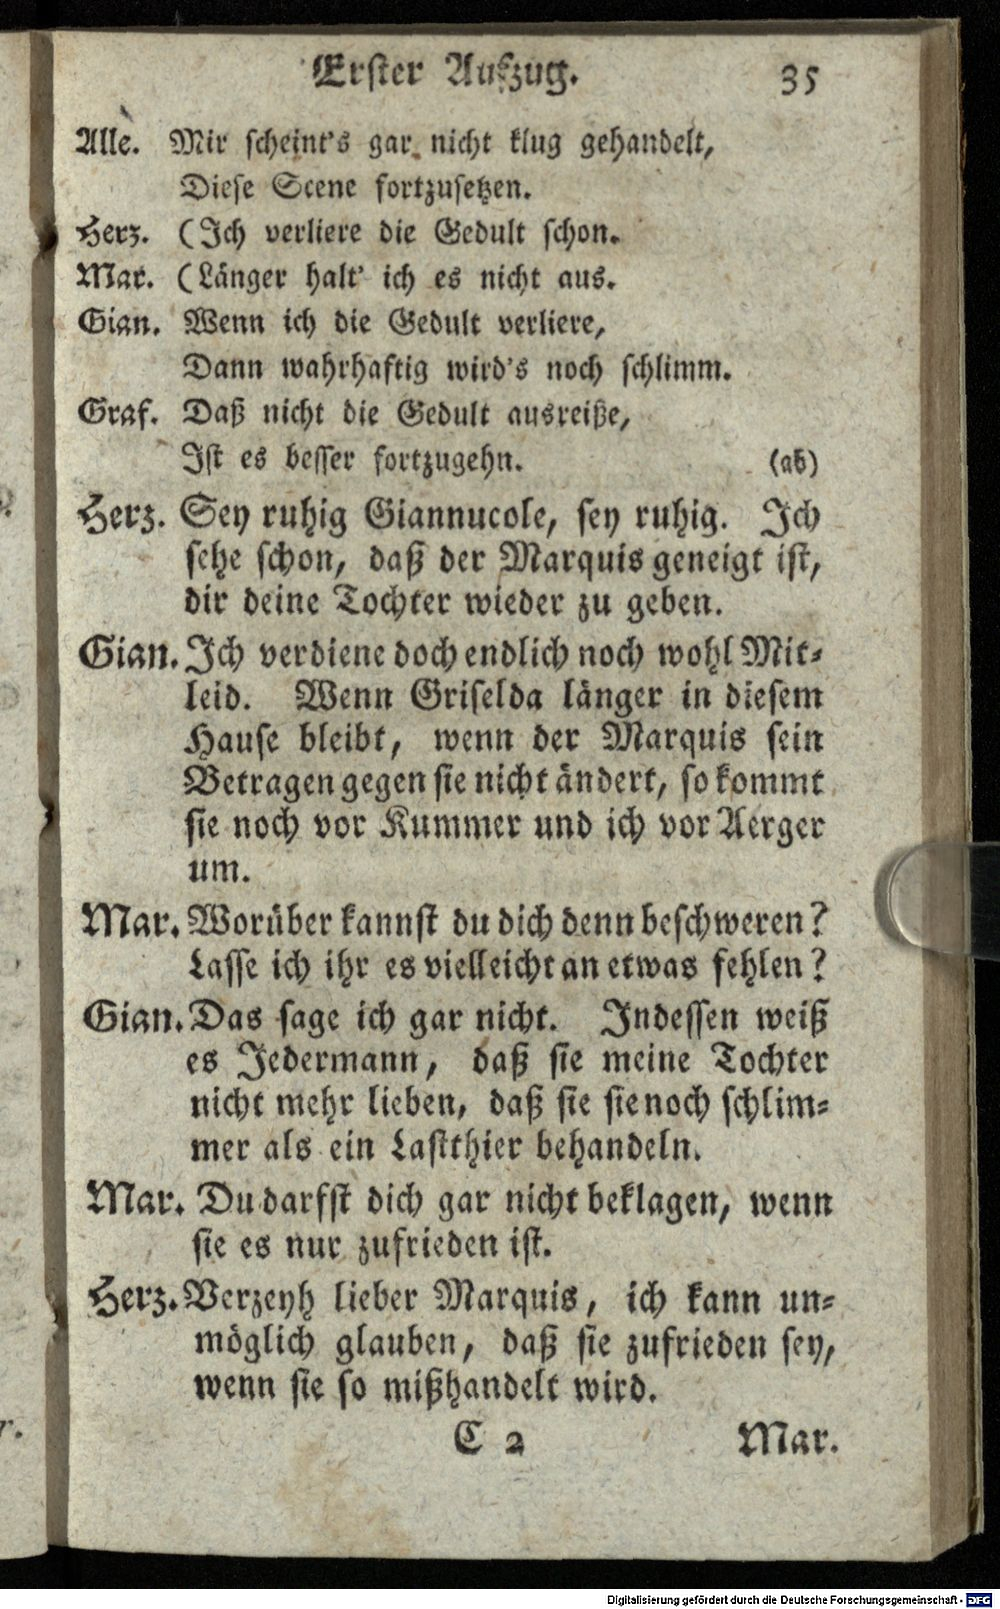 Erster Aufzug. 35
Alle. Mir scheint's gar nicht klug gehandelt,
Diese Scene fortzusetzen.
Herz. (Ich verliere die Gedult schon.
Mar. (Länger halt' ich es nicht aus.
Gian. Wenn ich die Gedult verliere,
Dann wahrhaftig wird's noch schlimm.
Graf. Daß nicht die Gedult ausreiße,
Ist es besser fortzugehn. (ab)
Herz. Sey ruhig Giannucole, sey ruhig. Ich
sehe schon, daß der Marquis geneigt ist,
dir deine Tochter wieder zu geben.
Gian. Ich verdiene doch endlich noch wohl Mit-
leid. Wenn Griselda länger in diesem
Hause bleibt, wenn der Marquis sein
Betragen gegen sie nicht ändert, so kommt
sie noch vor Kummer und ich vor Aerger
um.
Mar. Worüber kannst du dich denn beschweren?
Lasse ich ihr es vielleicht an etwas fehlen?
Gian. Das sage ich gar nicht. Indessen weiß
es Jedermann, daß sie meine Tochter
nicht mehr lieben, daß sie sie noch schlim-
mer als ein Lastthier behandeln.
Mar. Du darfst dich gar nicht beklagen, wenn
sie es nur zufrieden ist.
Herz. Verzeyh lieber Marquis, ich kann un-
möglich glauben, daß sie zufrieden sey,
wenn sie so mißhandelt wird.
C 2 Mar.
Digitalisierung gefördert durch die Deutsche Forschungsgemeinschaft - DFG